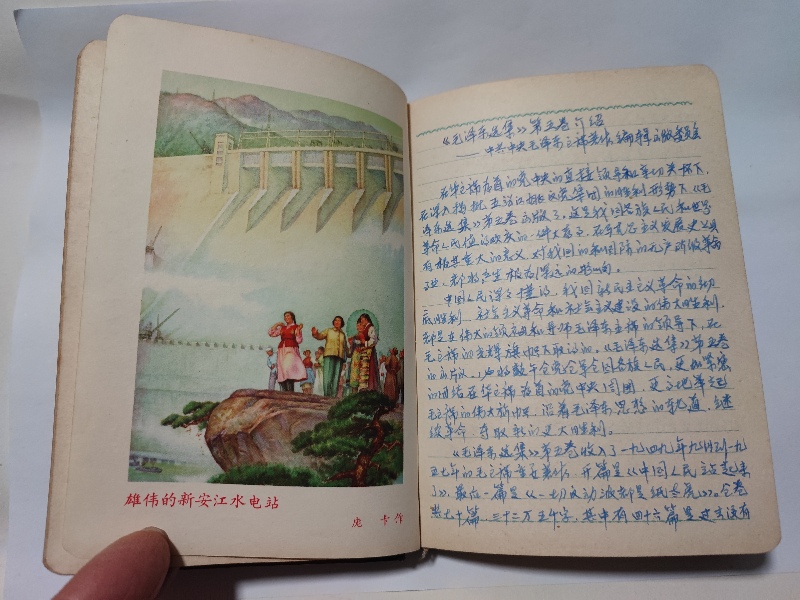 雄伟的新安江水电站
庞卡作
《毛泽东选集》第五卷介绍
——中共中央毛泽东主席著作编辑出版委员会
在华主席为首的党中央的直接领导和亲切关怀下,
在深入揭批王张江姚反党集团的胜利形势下,《毛
泽东选集》第五卷出版了,这是我国各族人民和世界
革命人民值得欢庆的一件大喜事,在马克思主义发展史上具
有极其重大的意义,对我国的和国际的无产阶级革命事
业,都将产生极为深远的影响。
中国人民深深懂得,我国新民主主义革命的彻
底胜利,社会主义革命和社会主义建设的伟大胜利,
都是在伟大的领袖和导师毛泽东主席的领导下,在
毛主席的光辉旗帜下取得的。《毛泽东选集》第五卷
的出版,必将激励全党全军全国各族人民,更加紧密
的团结在华主席为首的党中央周围,更高地举起
毛主席的伟大旗帜,沿着毛泽东思想的轨道,继
续革命,夺取新的更大胜利。
《毛泽东选集》第五卷收入了一九四九年九月到一九
五七年的毛主席重要著作,开篇是《中国人民站起来
了》,最后一篇是《一切反动派都是纸老虎》。全卷
共七十篇,三十二万五千字,其中有四十六篇是过去没有